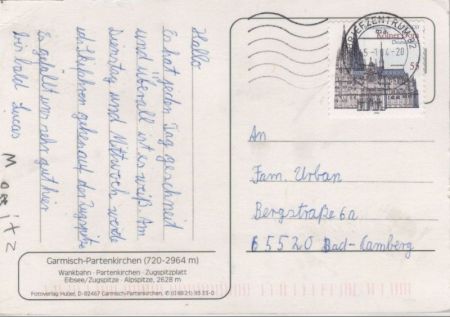 Hallo
Es hat jeden Tag geschneid
und überall ist es weiß. Am
Dienstag und Mittwoch werde
ich Skifahren gehen auf der Zugspitze
Es gefällt mir sehr gut hier
bis bald Lucas
Moritz
Garmisch-Partenkirchen (720-2964 m)
Wankbahn · Partenkirchen · Zugspitzplatt
Eibsee/Zugspitze · Alpspitze, 2628 m
Fotoverlag Huber, D-82467 Garmisch-Partenkirchen,
BRIEFZENTRUM 82
Kölner Dom
55
An
Fam. Urban
Bergstraße 6a
65520 Bad-Camberg